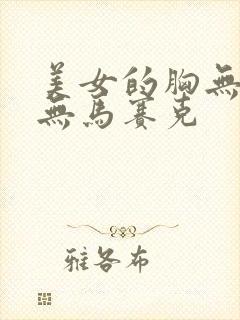 美女的胸無
無馬賽克
雅各布